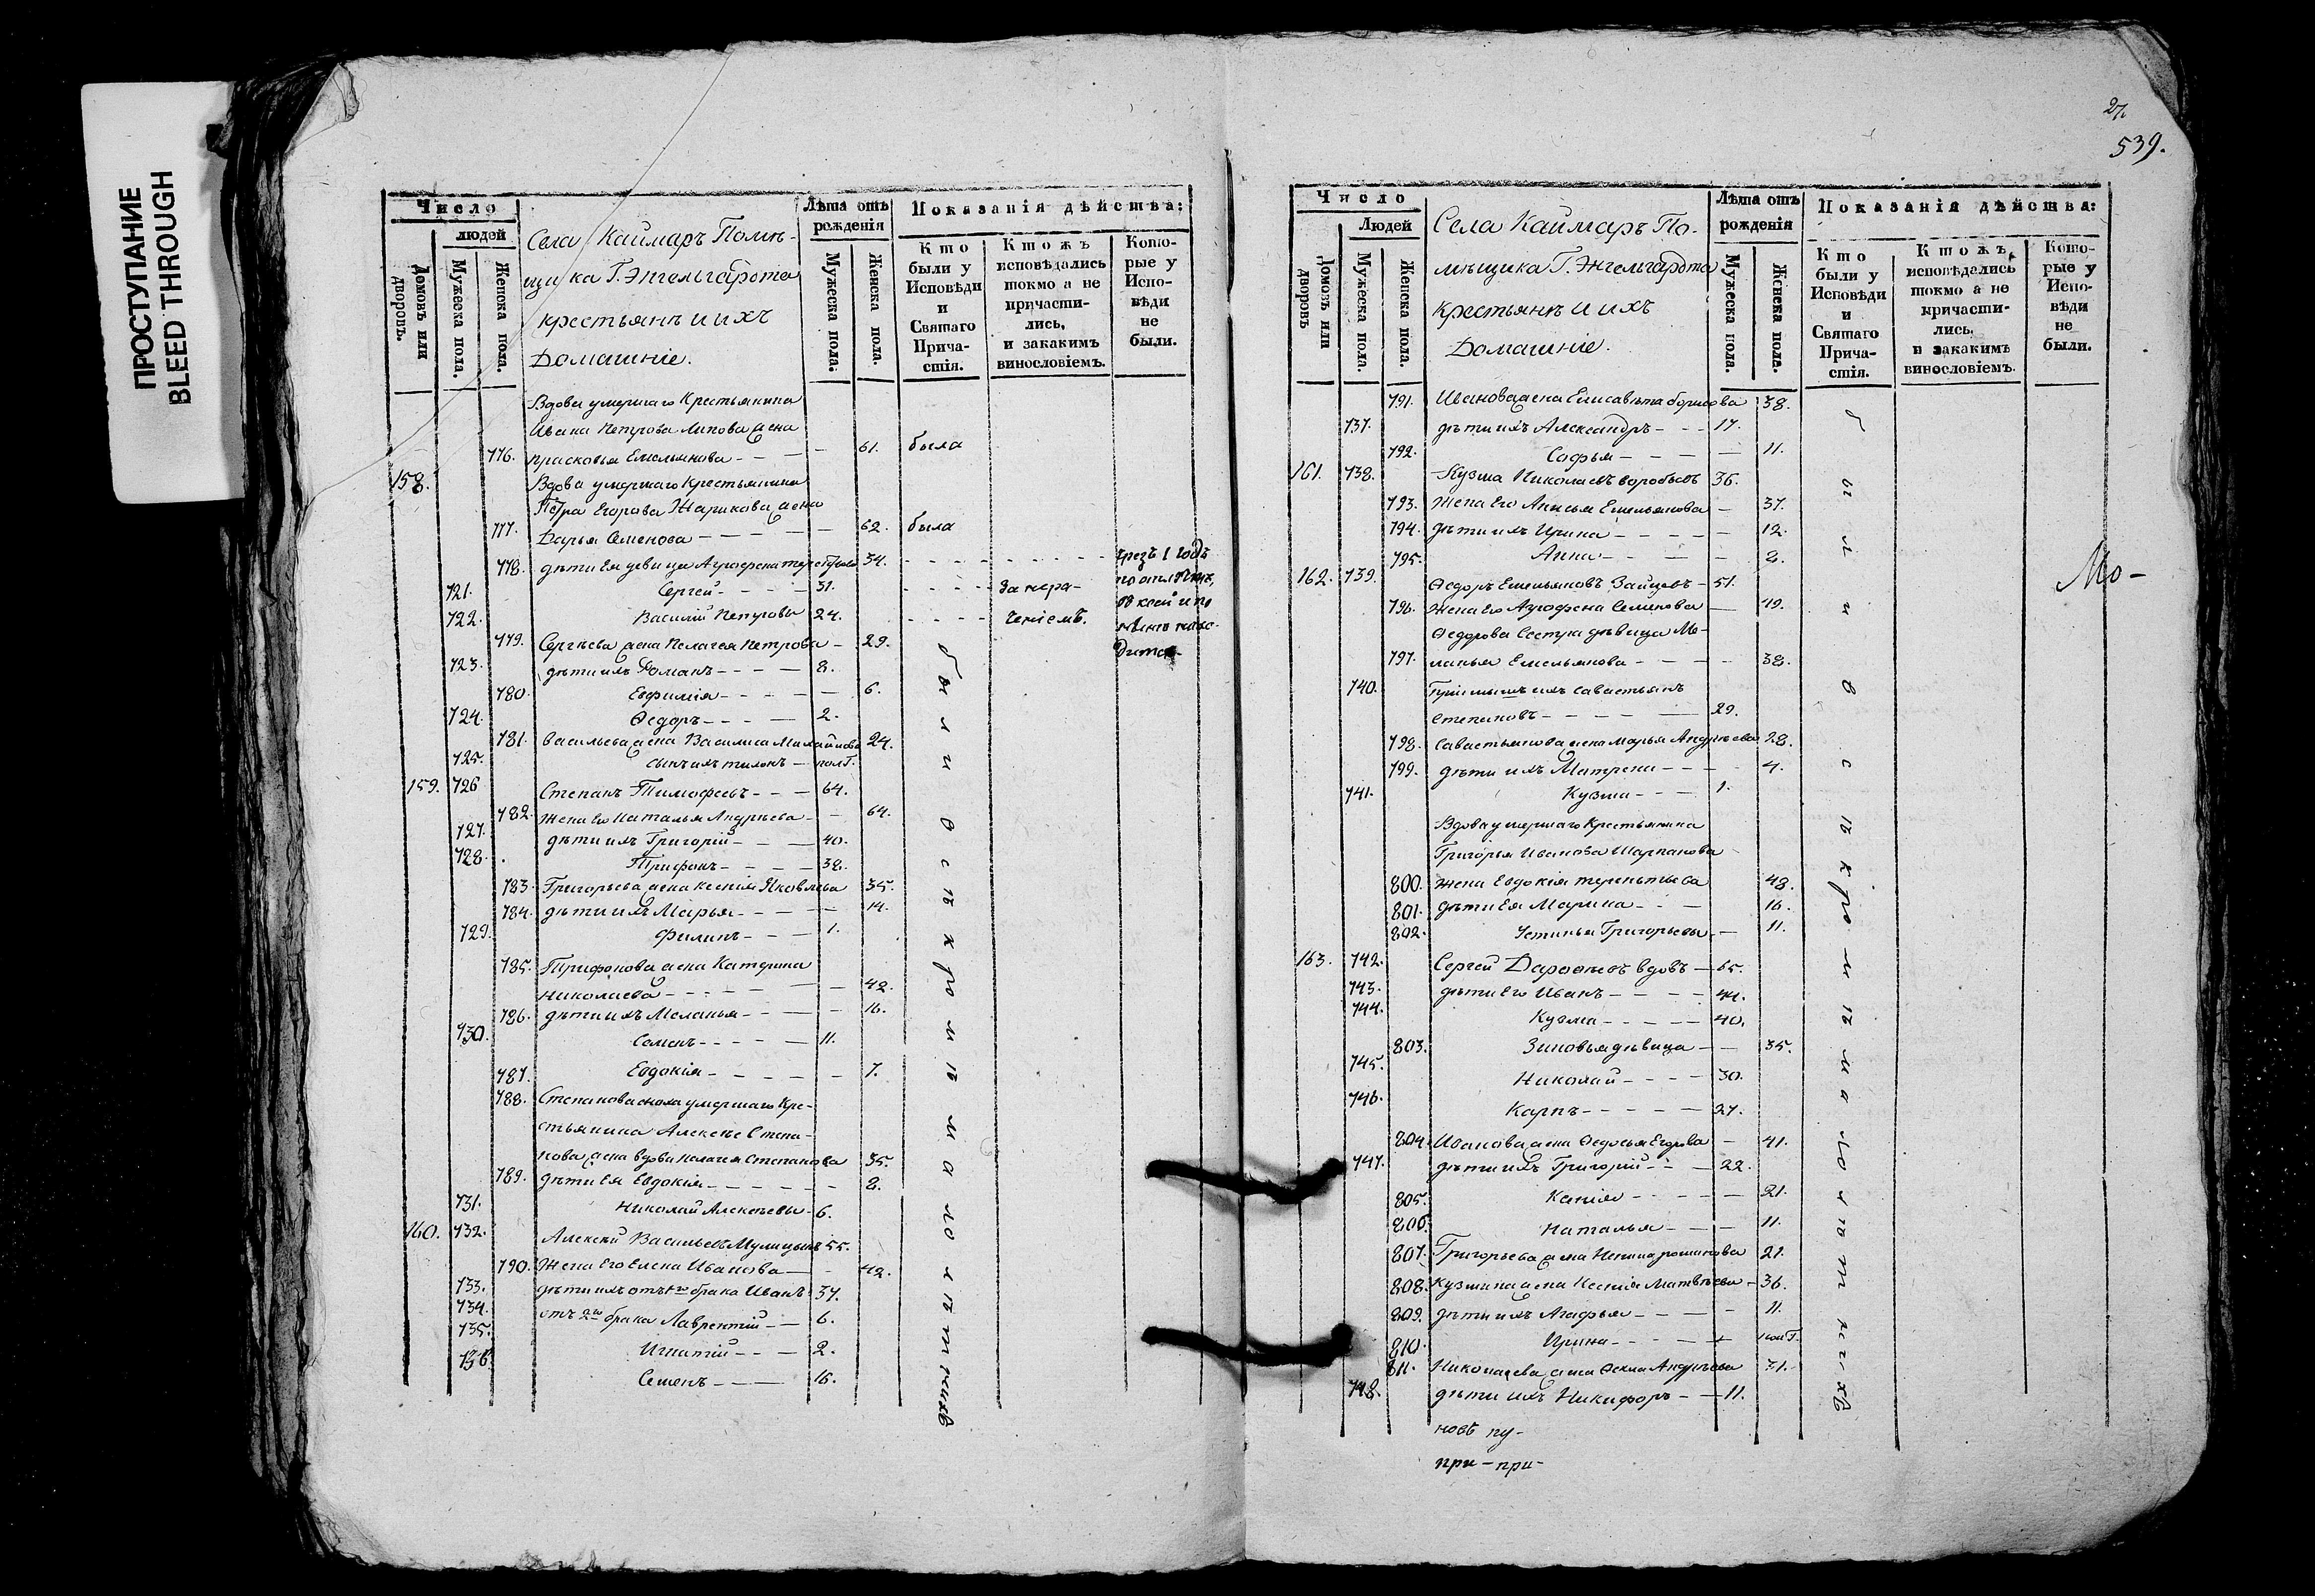 ПРОСТУПАНИЕ
BLEED THROUGH
Число
людей
Домовъ или дворовъ.
Мужеска пола.
Женска пола.
Села Каймаръ Помѣ-
щика Г. Энгельгардта
крестьянъ и ихъ
Домашніе.
Лѣта отъ рожденія
Мужеска пола.
Женска пола.
Показанія дѣйства:
Кто были у Исповѣди и Святаго Причастія.
Ктожъ исповѣдались токмо а не причастились, и закакимъ винословіемъ.
Которые у Исповѣди не были.
Вдова умершаго Крестьянина
Ивана Петрова жена
776. Прасковья Емельянова - - - 61. была
158. Вдова умершаго Крестьянина
Петра Егорова Жарикова жена
777. Дарья Семенова - - - - 62. была
778. дѣти Ея девица Аграфена 34. - - - - чрезъ 1 годъ
721. Сергей - - - - 31. - - - - За нера-
722. Василій Петровы 24. - - - - ченіемъ.
779. Сергѣева жена Пелагея Петрова - 29.
723. дѣти ихъ Романъ - - - 8.
780. Евфимія - - - - 6.
724. Ѳедоръ - - - 2.
781. Васильева жена Василиса Михайлова 24.
725. сынъ ихъ тихонъ - пол Г.
159. 726 Степанъ Тимофеевъ - - - 64.
782. Жена Его Наталья Андрѣева - - 64.
727. дѣти ихъ Григорій - - - 40.
728. Трифонъ - - - - 38.
783. Григорьева жена Ксенія Яковлева 35.
784. дѣти ихъ Марья - - - - 14.
729. Филипъ - - - 1.
785. Трифонова жена Катерина
Николаева - - - - 42.
786. дѣти ихъ Меланья - - - - 16.
730. Семенъ - - - - 11.
787. Евдокія - - - - - 7.
788. Степанова сноха умершаго Кре-
стьянина Алексѣя Степа-
нова жена вдова Пелагея Степанова 35.
789. дѣти Ея Евдокія - - - - - 8.
731. Николай Алексѣевы - 6.
160. 732. Алексѣй Васильевъ Мулицынъ 55.
790. Жена Его Елена Иванова - 42.
733. дѣти ихъ отъ 1го брака Иванъ 37.
734. отъ 2го брака Лаврентій - - 6.
735. Игнатій - - - 2.
736. Семенъ - - - 16.
были всѣ кромѣ малолѣтнихъ
27
539.
Число
Людей
Домовъ или дворовъ
Мужеска пола.
Женска пола.
Села Каймаръ По-
мѣщика Г. Энгельгардта
крестьянъ и ихъ
Домашніе.
Лѣта отъ рожденія
Мужеска пола.
Женска пола.
Показанія дѣйства:
Кто были у Исповѣди и Святаго Причастія.
Ктожъ исповѣдались токмо а не причастились, и закакимъ винословіемъ.
Которые у Исповѣди не были.
791. Иванова жена Елисавѣта борисова 38.
737. дѣти ихъ Александръ - - - 17.
792. Софья - - - - 11.
161. 738. Кузма Николаевъ воробьевъ 36.
793. Жена Его Анисья Емельянова - 37.
794. дѣти ихъ Ирина - - - - 12.
795. Анна - - - - 8.
162. 739. Ѳедоръ Емельяновъ Зайцевъ - 51.
796. Жена Его Аграфена Семенова - 49.
Ѳедорова Сестра дѣвица Ме-
797. ланья Емельянова - - - - 38.
740. Пріимышъ ихъ Савастьянъ
Степановъ - - - - 29.
798. Савастьянова жена Марья Андрѣева 28.
799. дѣти ихъ Матрена - - - 4.
741. Кузма - - - 1.
Вдова умершаго Крестьянина
Григорья Иванова Шарпанова
800. жена Евдокія терентьева 48.
801. дѣти Ея Марина - - - 16.
802. Устинья Григорьевы - 11.
163. 742. Сергей Дарофѣевъ вдовъ - 65.
743. дѣти Его Иванъ - - - - 44.
744. Кузма - - - - 40.
803. Зиновья дѣвица - - 35.
745. Николай - - - - 30.
746. Карпъ - - - - - 27.
804. Иванова жена Ѳедосья Егорова - 41.
747. дѣти ихъ Григорій - - - 22.
805. Капія - - - - - 21.
806. Наталья - - - - 11.
807. Григорьева жена Ненила романова 21.
808. Кузмина жена Ксенія Матвѣева - 36.
809. дѣти ихъ Агафья - - - - 11.
810. Ирина - - - - пол Г.
811. Николаева жена Ѳекла Андрѣева 31.
748. дѣти ихъ Никифоръ - - 11.
были всѣ кромѣ малолѣтнихъ
Мо-
новъ пу-
при - при-